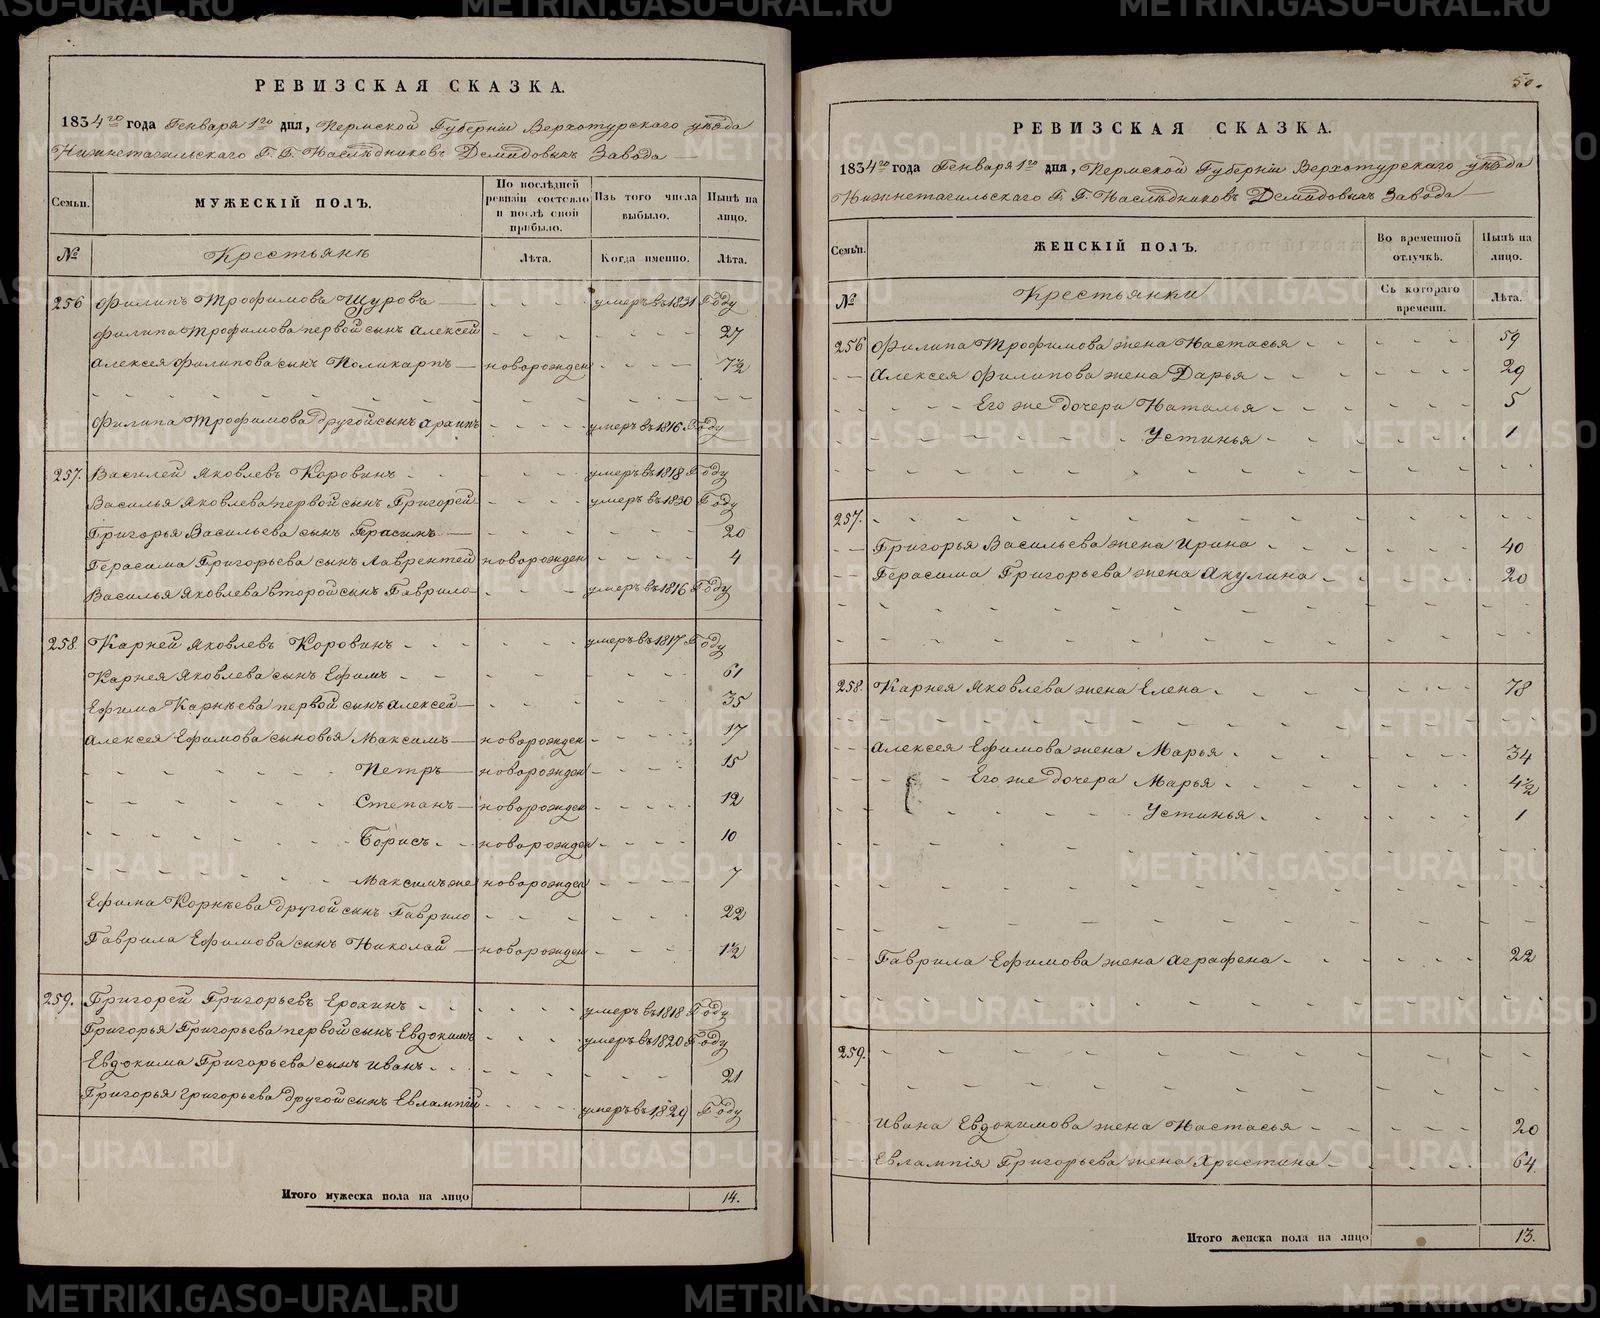 РЕВИЗСКАЯ СКАЗКА.
1834го года Генваря 1го дня, Пермской Губернїи Верхотурскаго уѣзда
Нижнетагильскаго Г. Г. Наслѣдниковъ Демидовыхъ Завода
Семьи. МУЖЕСКІЙ ПОЛЪ. По послѣдней ревизіи состояло и послѣ оной прибыло. Изъ того числа выбыло. Нынѣ на лицо.
№ Крестьянъ Лѣта. Когда именно. Лѣта.
256 Филипъ Трофимовъ Щуровъ умеръ въ 1831 Году
Филипа Трофимова первой сынъ Алексей 27
Алексея Филипова сынъ Поликарпъ новорожден 7½
Филипа Трофимова другой сынъ Архипъ умеръ въ 1816 Году
257. Василей Яковлевъ Коровинъ умеръ въ 1818 Году
Василья Яковлева первой сынъ Григорей умеръ въ 1830 Году
Григорья Васильева сынъ Герасимъ 20
Герасима Григорьева сынъ Лаврентей новорожден 4
Василья Яковлева второй сынъ Гаврило умеръ въ 1816 Году
258. Карней Яковлевъ Коровинъ умеръ въ 1817 Году
Карнея Яковлева сынъ Ефимъ 61
Ефима Карнѣева первой сынъ Алексей 35
Алексея Ефимова сыновья Максимъ новорожден 17
Петръ новорожден 15
Степанъ новорожден 12
Борисъ новорожден 10
Максимъ же новорожден 7
Ефима Корнѣева другой сынъ Гаврило 22
Гаврила Ефимова сынъ Николай новорожден 1½
259. Григорей Григорьевъ Ерохинъ умеръ въ 1818 Году
Григорья Григорьева первой сынъ Евдокимъ умеръ въ 1820 Году
Евдокима Григорьева сынъ Иванъ 21
Григорья Григорьева другой сынъ Евлампїй умеръ въ 1829 Году
Итого мужеска пола на лицо 14.
50.
РЕВИЗСКАЯ СКАЗКА.
1834го года Генваря 1го дня, Пермской Губернїи Верхотурскаго уѣзда
Нижнетагильскаго Г. Г. Наслѣдниковъ Демидовыхъ Завода
Семьи. ЖЕНСКІЙ ПОЛЪ. Во временной отлучкѣ. Нынѣ на лицо.
№ Крестьянки Съ котораго времени. Лѣта.
256 Филипа Трофимова жена Настасья 59
Алексея Филипова жена Дарья 29
Его же дочери Наталья 5
Устинья 1
257.
Григорья Васильева жена Ирина 40
Герасима Григорьева жена Акулина 20
258. Карнея Яковлева жена Елена 78
Алексея Ефимова жена Марья 34
Его же дочера Марья 4½
Устинья 1
Гаврила Ефимова жена Аграфена 22
259.
Ивана Евдокимова жена Настасья 20
Евлампія Григорьева жена Христина 64
Итого женска пола на лицо 13.
METRIKI.GASO-URAL.RU